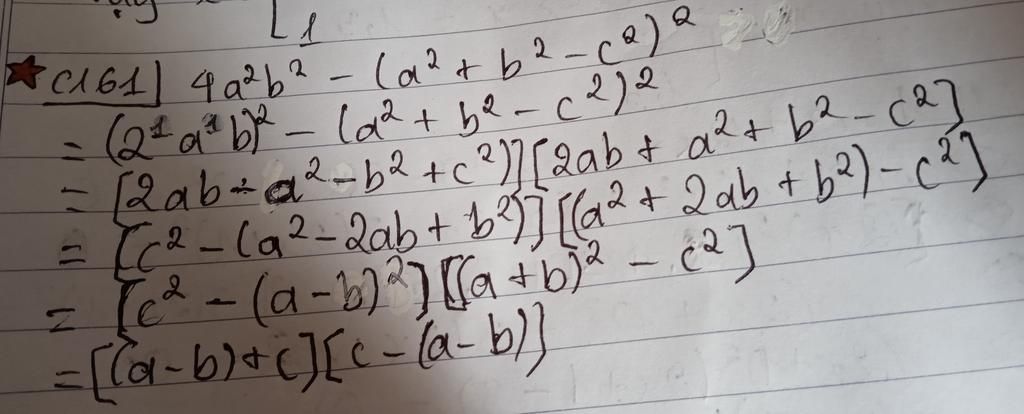 [1
C161] 4a²b² - (a² + b² - c²)²
= (2¹a¹b)² - (a² + b² - c²)²
= [2ab - a² - b² + c²)][2ab + a² + b² - c²]
= [c² - (a² - 2ab + b²)][(a² + 2ab + b²) - c²]
= [c² - (a - b)²][(a + b)² - c²]
= [(a - b) + c][c - (a - b)]